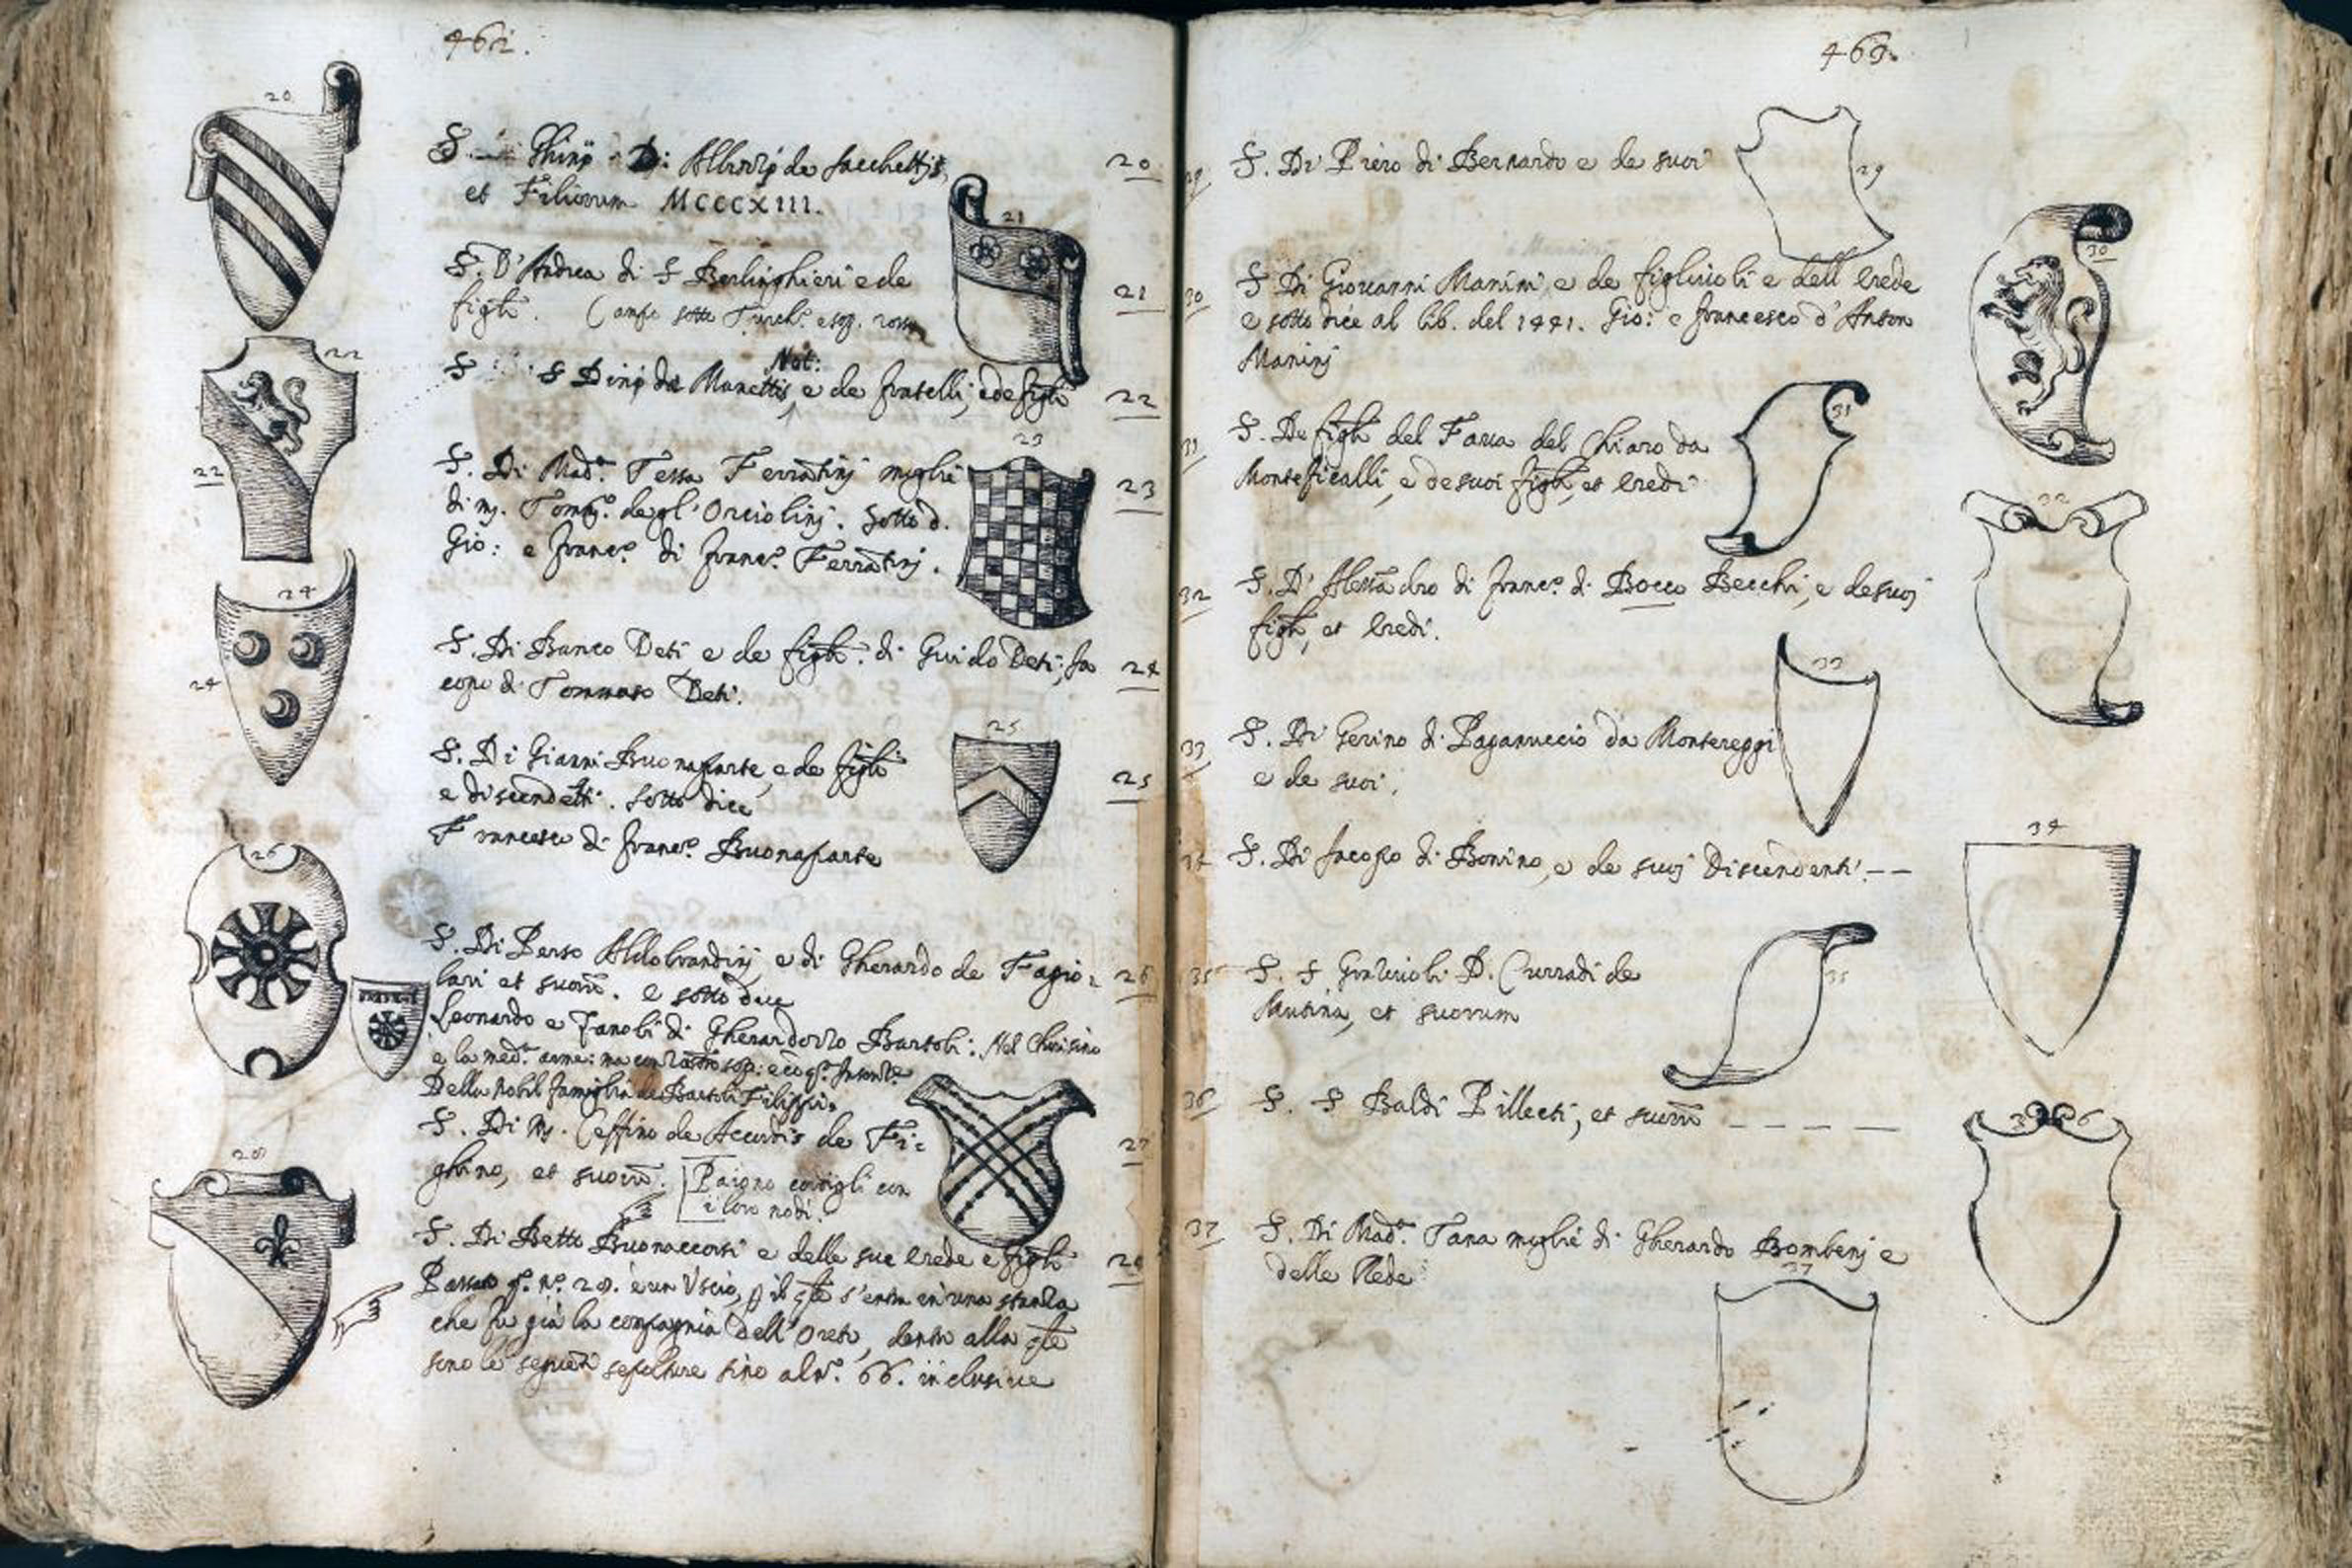 462.
20
S. Ghinj D: Albizzj de Sacchettjs, 20
et Filiorum MCCCXIII.
21
S. D'Andrea di S Berlinghieri e de 21
figli. (Campo sotto Turch. e sop. rosso
22
Not:
S S Dinj de Manettis, e de fratelli, e de figli 22
22
23
S. Di Mad.a Tessa Ferrantinj moglie 23
di mj. Tomm.o degl'Orciolinj. Sotto d.
Gio: e Franc.o di Franc.o Ferrantinj.
24
S. Di Banco Deti e de figli. di Guido Deti; Ja 24
copo di Tommaso Deti.
24
25
S. Di Gianni Buonaparte, e de figli 25
e discendenti. Sotto dice
Francesco di Franc.o Buonaparte
26
S. Di Perso Aldobrandinj e di Gherardo de Fagio: 26
lari et suorū. e sotto dice
Leonardo e Zanobi di Gherardozzo Bartoli: Nel
e la med.a arme: ma con
Della nobil famiglia de Bartoli Filippi.
S. Di Mj. Ceffino de Accorris de Fi: 27
ghino, et suorū. Paiono conigli con
i loro nodi.
28
S. Di Betto Buonaccorsi e delle sue erede e figli 28
Passato q.o N.o 28. è un Uscio, p il qle s'entra in una stanza
che fu già la compagnia dell'Oreto, dentro alla qle
sono le seguēti sepolture sino al N.o 66. inclusive
463.
29 S. Di Piero di Bernardo e de suoi 29
30
30 S Di Giovanni Manini e de figliuoli e dell'erede
e sotto dice al lib. del 1441. Gio: e Francesco d'Anton
Maninj
31
31 S. De figli del Fava del Chiaro da
Monteficalli, e de suoi figli, et eredi
32
32 S. D'Alessādro di Franc.o di Bocco Becchi, e de suoj
figli, et eredi.
33
33 S. Di Gerino di Paganuccio da Montereggi
e de suoi.
34
34 S. Di Jacopo di Bonino, e de suoj Discendenti.--
35 S. S Gratiuoli D. Curradi de 35
Mutina, et suorum
36 S. S Baldi Pillecti, et suorū - - - -
36
37 S. Di Mad.a Tana moglie di Gherardo Bombenj e
delle Rede
37